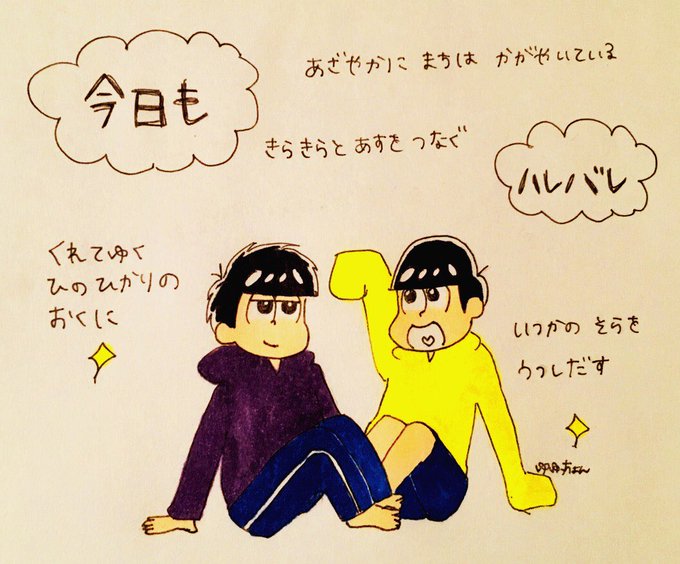 今日も
あざやかに まちは かがやいている
きらきらと あすを つなぐ
ハレバレ
くれてゆく
ひのひかりの
おくに
いつかの そらを
うつしだす